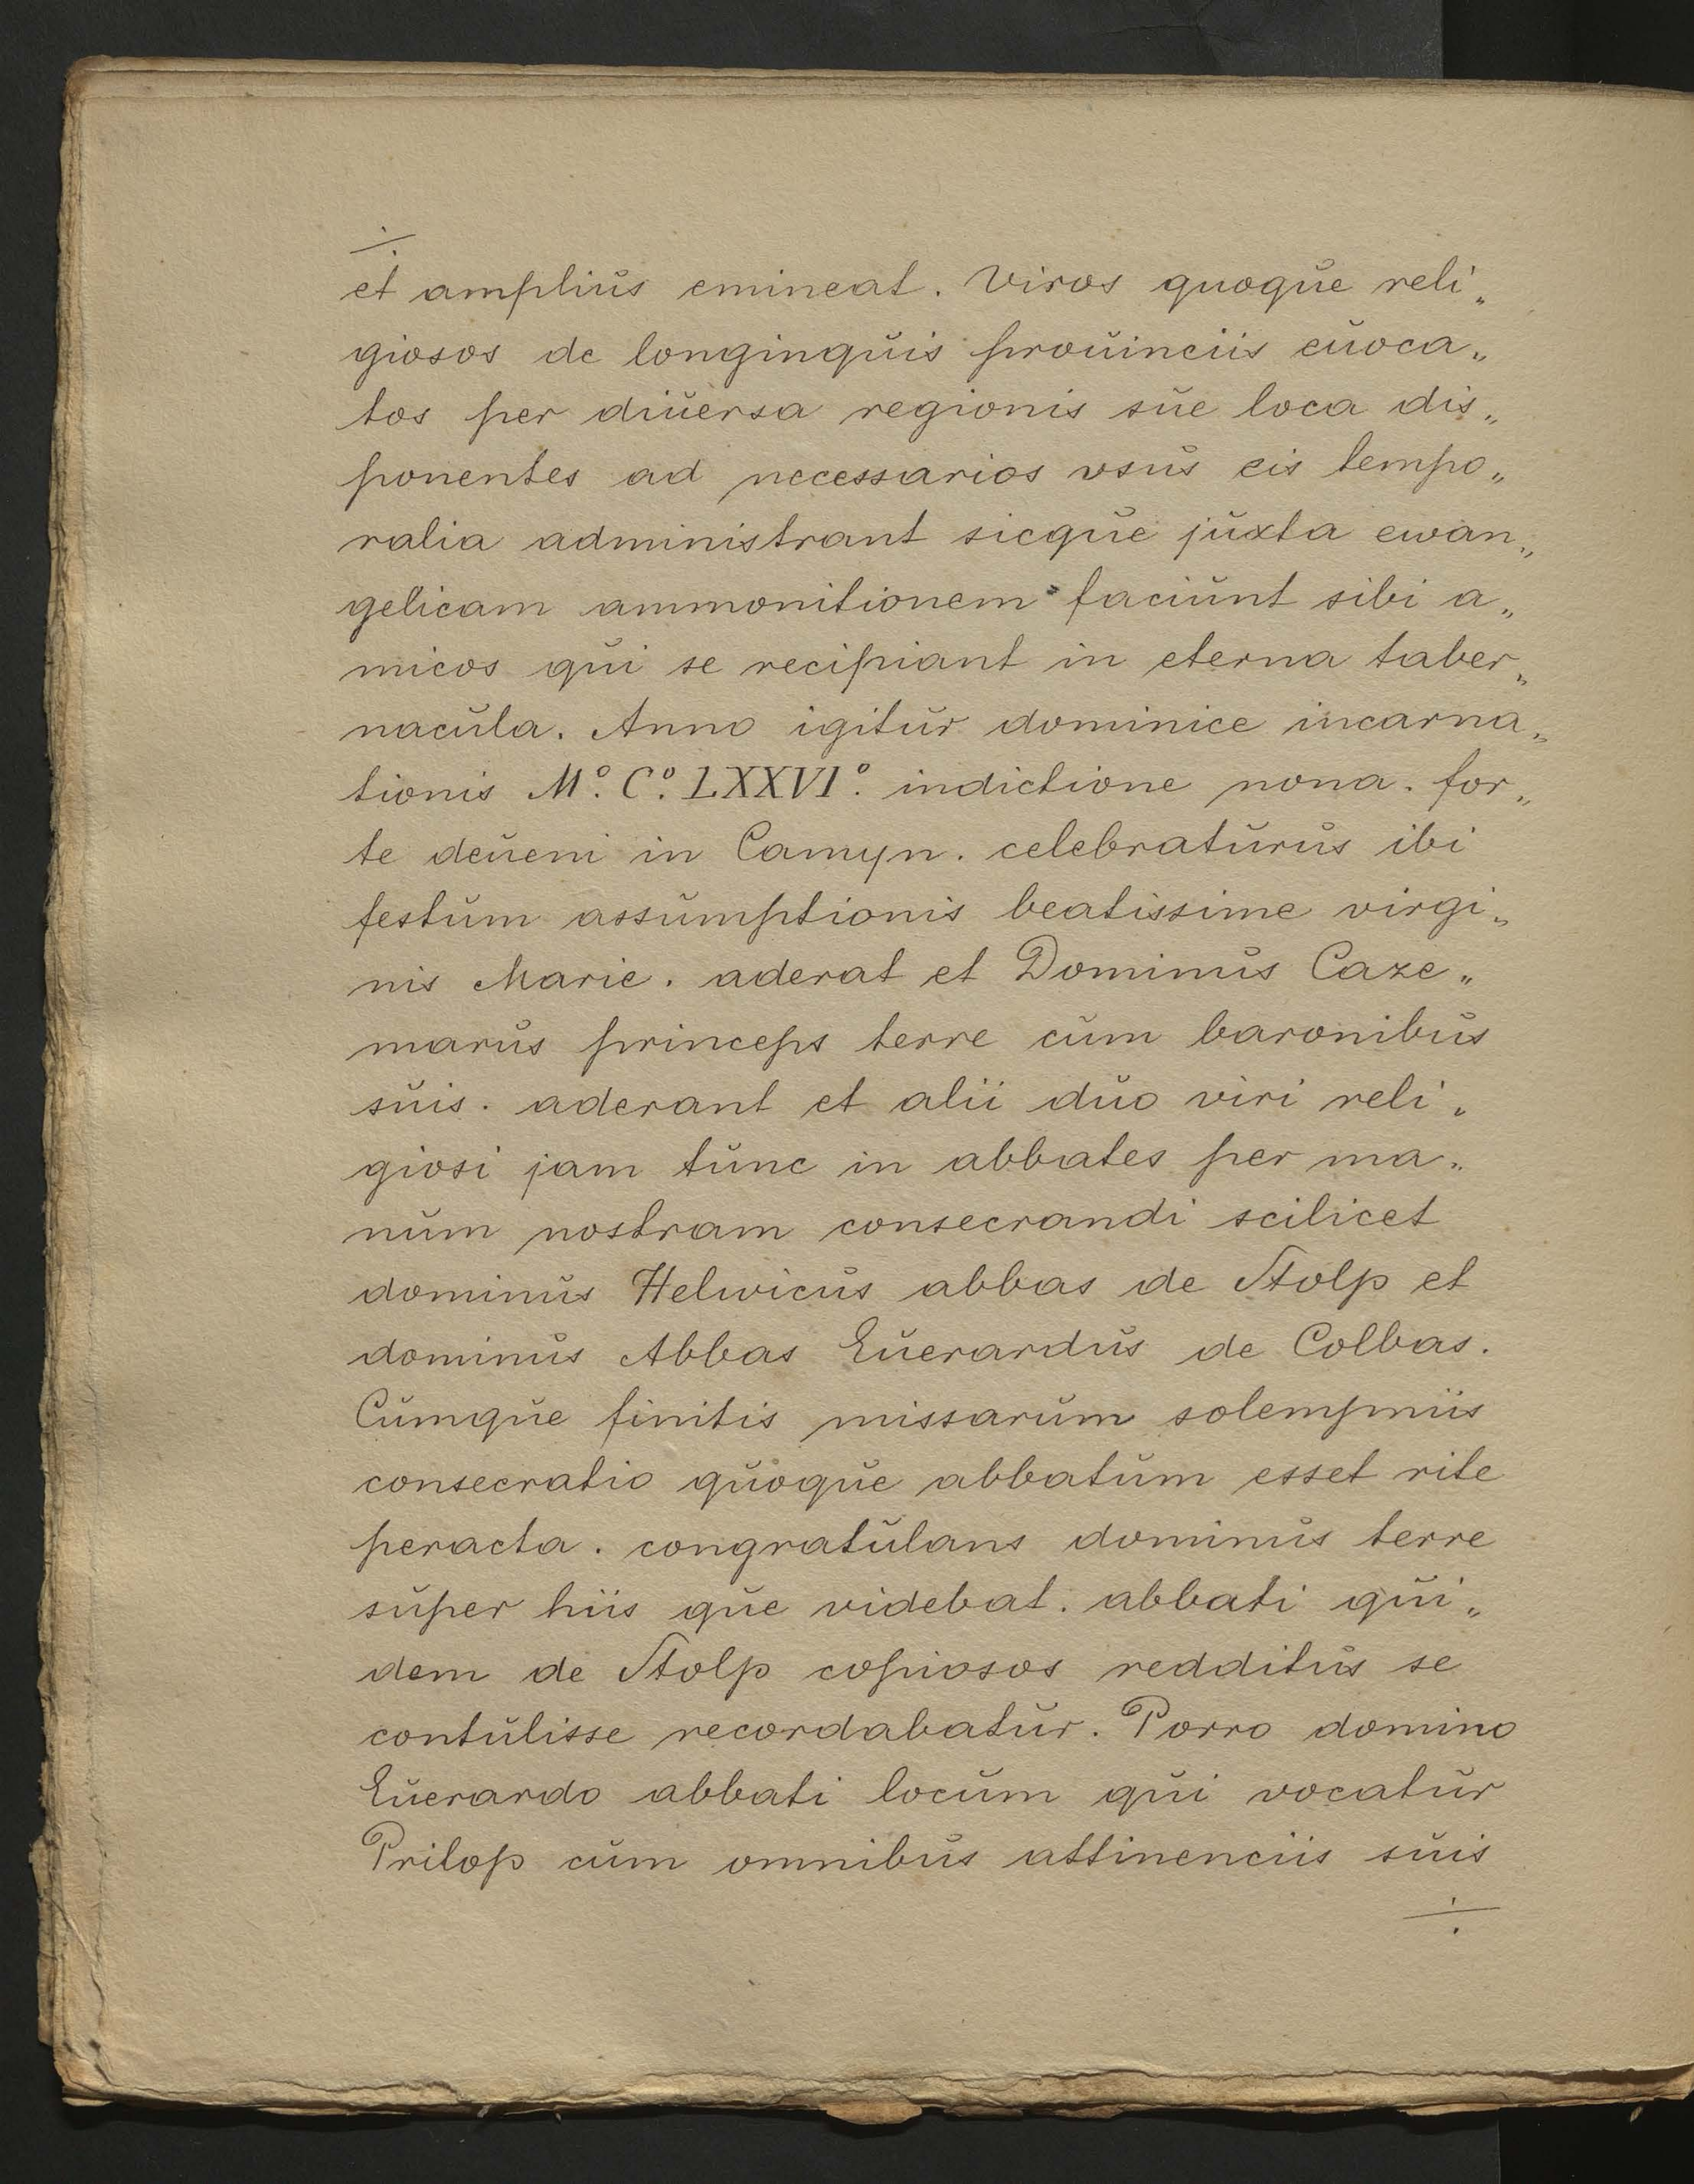 ÷
et amplius emineat. Viros quoque reli„
giosos de longinquis prouinciis euoca„
tos per diuersa regionis sue loca dis„
ponentes ad necessarios vsus eis tempo„
ralia administrant sicque juxta ewan„
gelicam ammonitionem faciunt sibi a„
micos qui se recipiant in eterna taber„
nacula. Anno igitur dominice incarna„
tionis M.º C.º LXXVI.º indictione nona. for„
te deueni in Camyn. celebraturus ibi
festum assumptionis beatissime virgi„
nis Marie. aderat et Dominus Caze„
marus princeps terre cum baronibus
suis. aderant et alii duo viri reli„
giosi jam tunc in abbates per ma„
num nostram consecrandi scilicet
dominus Helwicus abbas de Stolp et
dominus Abbas Euerardus de Colbas.
Cumque finitis missarum solempniis
consecratio quoque abbatum esset rite
peracta. congratulans dominus terre
super hiis que videbat. abbati qui„
dem de Stolp copiosos redditus se
contulisse recordabatur. Porro domino
Euerardo abbati locum qui vocatur
Prilop cum omnibus attinenciis suis
÷